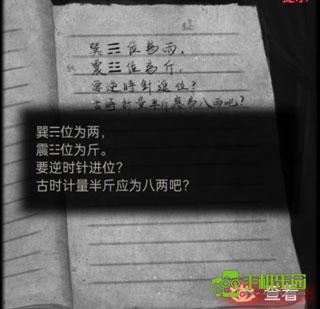 提示
巽☴位為两，
震☳位為斤，
要逆時针進位？
古時计量半斤應為八两吧？
巽☴位为两，
震☳位为斤。
要逆时针进位？
古时计量半斤应为八两吧？
手机乐园
查看